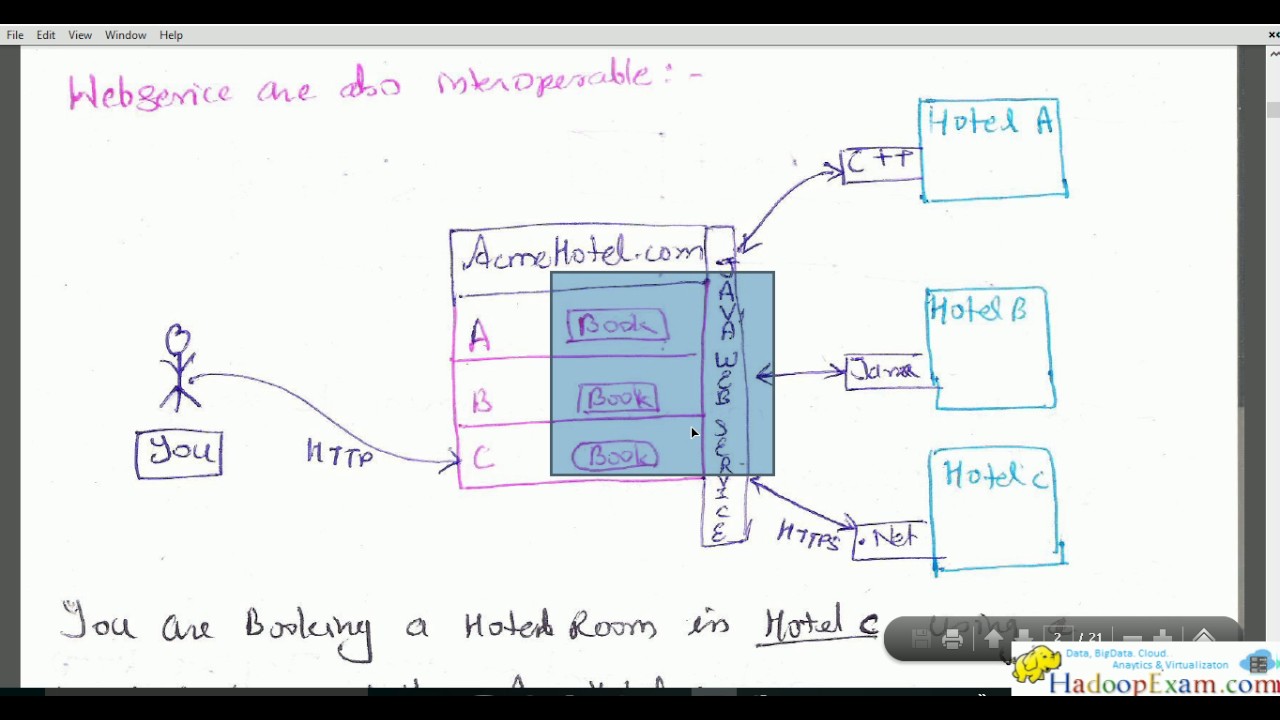 File Edit View Window Help
Webservice are also interoperable:-
Hotel A
C++
AcmeHotel.com
JAVA WEB SERVICE
A Book
B Book
C Book
Hotel B
Java
You
HTTP
Hotel C
HTTPS
.Net
You are Booking a Hotel Room in Hotel C using
2 / 21
Data, BigData. Cloud.
Anaytics & Virtualizaton
HadoopExam.com